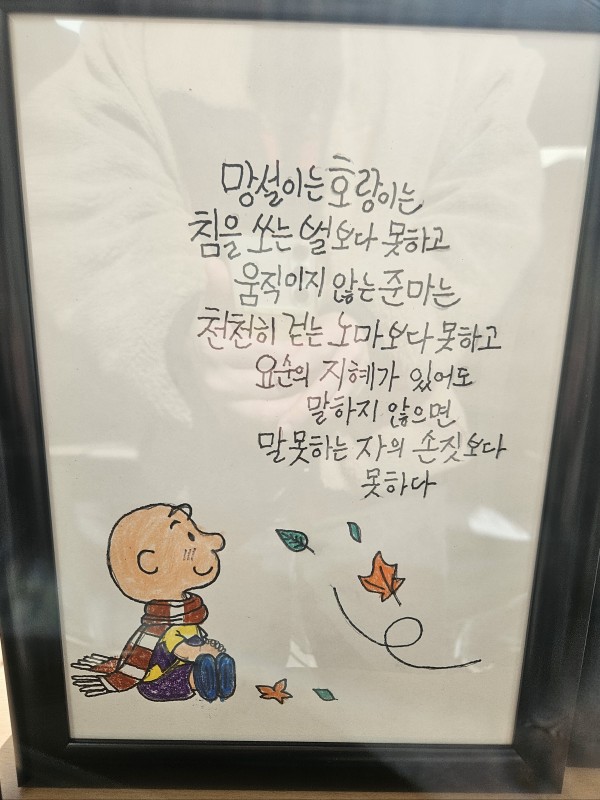 망설이는 호랑이는
침을 쏘는 벌보다 못하고
움직이지 않는 준마는
천천히 걷는 노마보다 못하고
요순의 지혜가 있어도
말하지 않으면
말못하는 자의 손짓보다
못하다